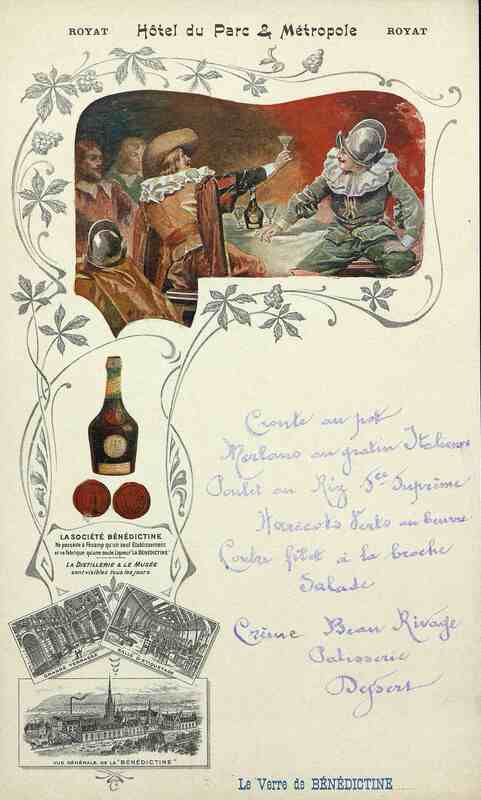 ROYAT Hôtel du Parc & Métropole ROYAT
LA SOCIÉTÉ BÉNÉDICTINE
Ne possède à Fécamp qu'un seul Etablissement
et ne fabrique qu'une seule Liqueur "LA BÉNÉDICTINE"
LA DISTILLERIE & LE MUSÉE
sont visibles tous les jours
GRANDE VERRIÈRE
SALLE D'ETIQUETAGE
VUE GÉNÉRALE DE LA "BÉNÉDICTINE"
Croute au pot
Merlans au gratin Italienne
Poulet au Riz Sce Suprême
Haricots Verts au beurre
Contre filet à la broche
Salade
Crème Beau Rivage
Patisserie
Dessert
Le Verre de BÉNÉDICTINE